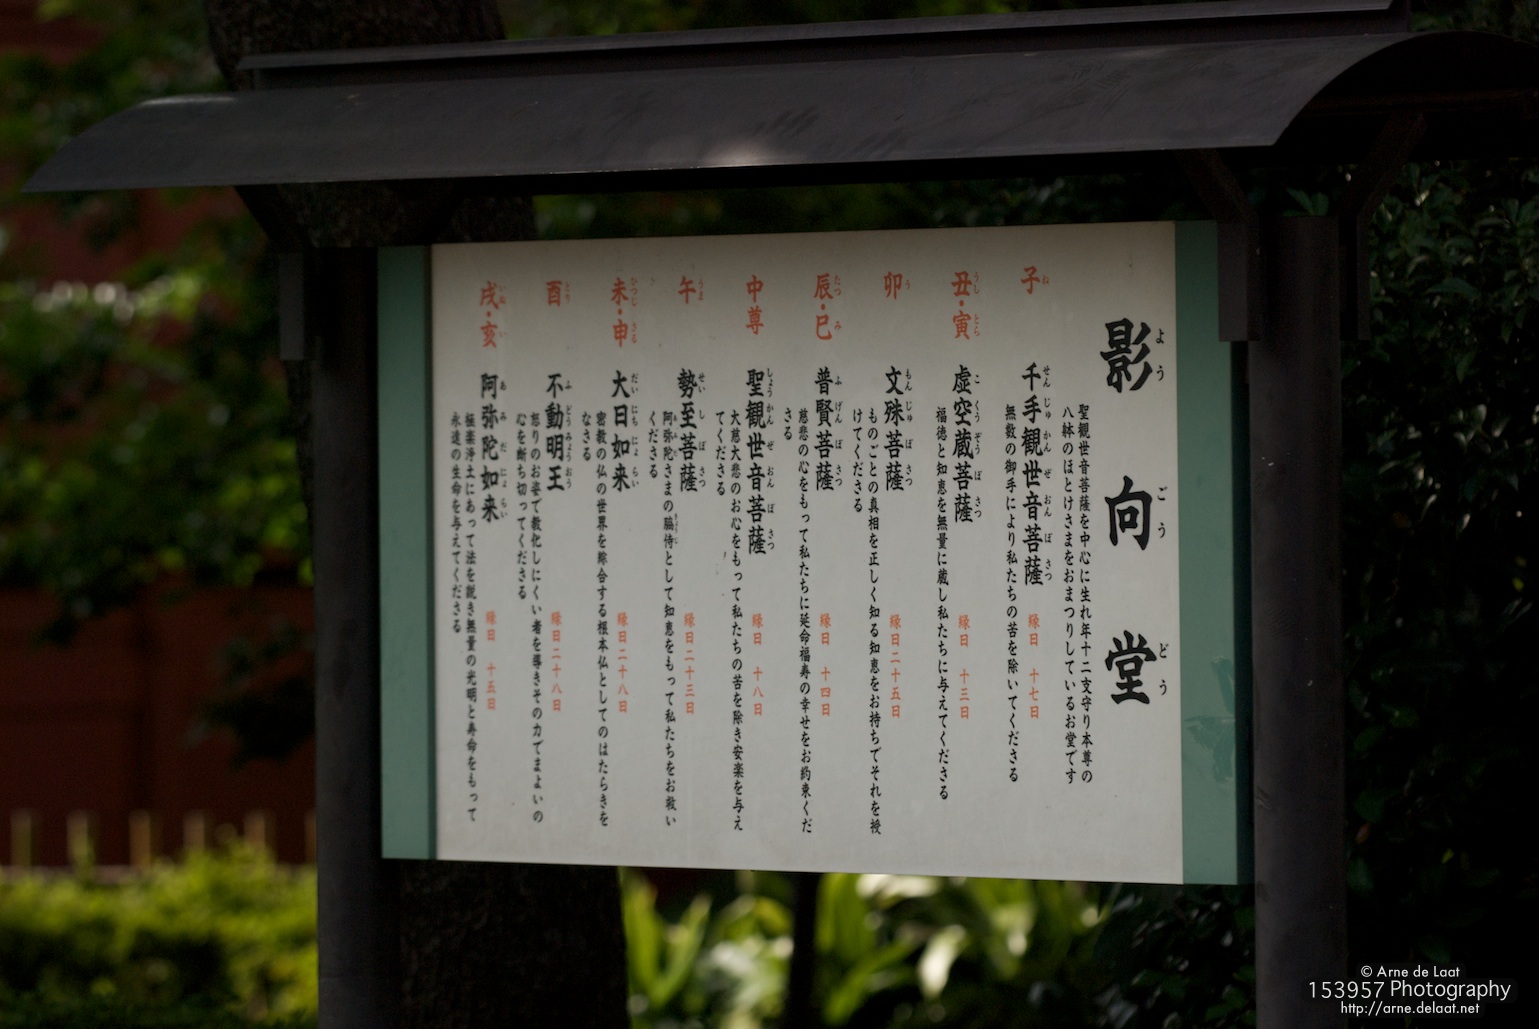 影向堂
ようごうどう
聖観世音菩薩を中心に生れ年十二支守り本尊の
八躰のほとけさまをおまつりしているお堂です
子
ね
千手観世音菩薩
せんじゅかんぜおんぼさつ
縁日 十七日
無数の御手により私たちの苦を除いてくださる
丑・寅
うし とら
虚空蔵菩薩
こくうぞうぼさつ
縁日 十三日
福徳と知恵を無量に蔵し私たちに与えてくださる
卯
う
文殊菩薩
もんじゅぼさつ
縁日二十五日
ものごとの真相を正しく知る知恵をお持ちでそれを授
けてくださる
辰・巳
たつ み
普賢菩薩
ふげんぼさつ
縁日 十四日
慈悲の心をもって私たちに延命福寿の幸せをお約束くだ
さる
中尊
聖観世音菩薩
しょうかんぜおんぼさつ
縁日 十八日
大慈大悲のお心をもって私たちの苦を除き安楽を与え
てくださる
午
うま
勢至菩薩
せいしぼさつ
縁日二十三日
阿弥陀さまの脇侍として知恵をもって私たちをお救い
くださる
未・申
ひつじ さる
大日如来
だいにちにょらい
縁日二十八日
密教の仏の世界を綜合する根本仏としてのはたらきを
なさる
酉
とり
不動明王
ふどうみょうおう
縁日二十八日
怒りのお姿で教化しにくい者を導きその力でまよいの
心を断ち切ってくださる
戌・亥
いぬ い
阿弥陀如来
あみだにょらい
縁日 十五日
極楽浄土にあって法を説き無量の光明と寿命をもって
永遠の生命を与えてくださる
© Arne de Laat
153957 Photography
http://arne.delaat.net